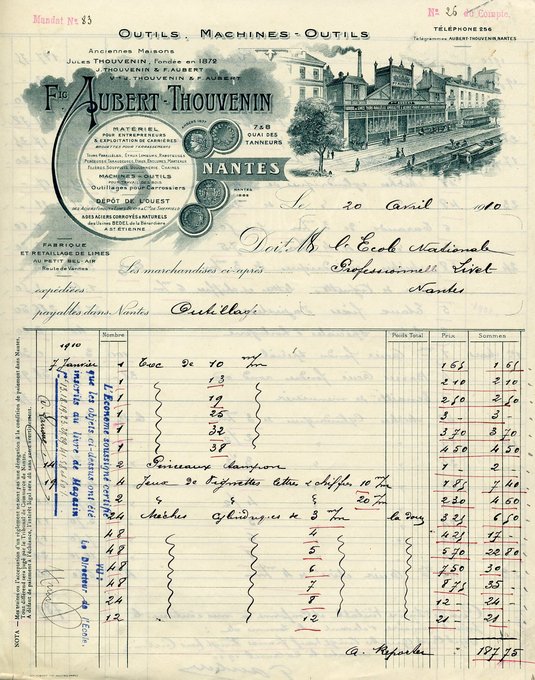 Mandat No 83
No 26 du Compte.
OUTILS, MACHINES-OUTILS
TÉLÉPHONE 256
Télégrammes: AUBERT-THOUVENIN, NANTES
Anciennes Maisons
JULES THOUVENIN, Fondée en 1872
J. THOUVENIN & F. AUBERT
Vve J. THOUVENIN & F. AUBERT
Fic AUBERT-THOUVENIN
MATÉRIEL
POUR ENTREPRENEURS
& EXPLOITATION DE CARRIÈRES
BROUETTES POUR TERRASSEMENTS
MACHINES-OUTILS
POUR TRAVAIL DES BOIS
Outillages pour Carrossiers
DÉPÔT DE L'OUEST
& DES ACIERS CORROYÉS & NATURELS
des Usines BEDEL de la Bérardière
A ST ETIENNE
7 & 8
QUAI DES
TANNEURS
NANTES
FABRIQUE
ET RETAILLAGE DE LIMES
AU PETIT BEL-AIR
Route de Vannes
Le 20 avril 1910
Doit M l'Ecole Nationale
Les marchandises ci-après Professionnelle Livet
expédiées Nantes
payables dans Nantes Outillage
Nombre Poids Total Prix Sommes
1910
7 Janvier 1 Toc de 10 m/m 1 65 1 65
1 13 2 10 2 10
1 19 2 60 2 60
1 25 3 - 3 -
1 32 3 70 3 70
1 38 4 50 4 50
14 2 Pinceaux tampon 1 - 2 -
19 4 Jeux de Vignettes lettres & chiffres 10 m/m 1 85 7 40
2 " " 20 m/m 2 30 4 60
24 Mèches Cylindriques de 3 m/m la douz 3 25 6 50
48 4 4 25 17 -
48 5 5 70 22 80
48 6 7 50 30 -
48 7 8 75 35 -
24 8 12 - 24 -
12 12 21 - 21 -
A Reporter 187 75
L'Econome soussigné certifie
que les objets ci-dessus ont été
inscrits au livre de Magasin
VU:
Le Directeur de l'Ecole.